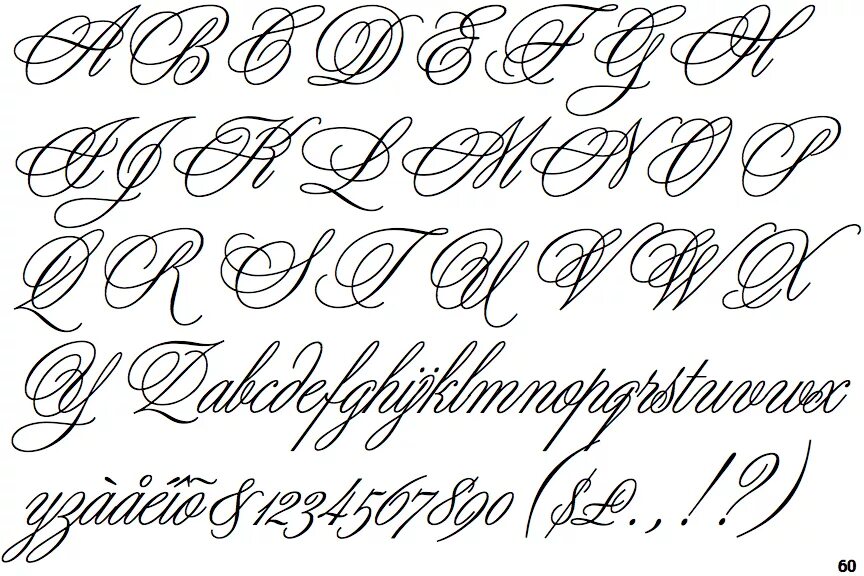 ABCDEFGH
IJKLMNOP
QRSTUVWX
YZabcdefghijklmnopqrstuvwx
yzàåéíõ&1234567890($£.,!?)
60